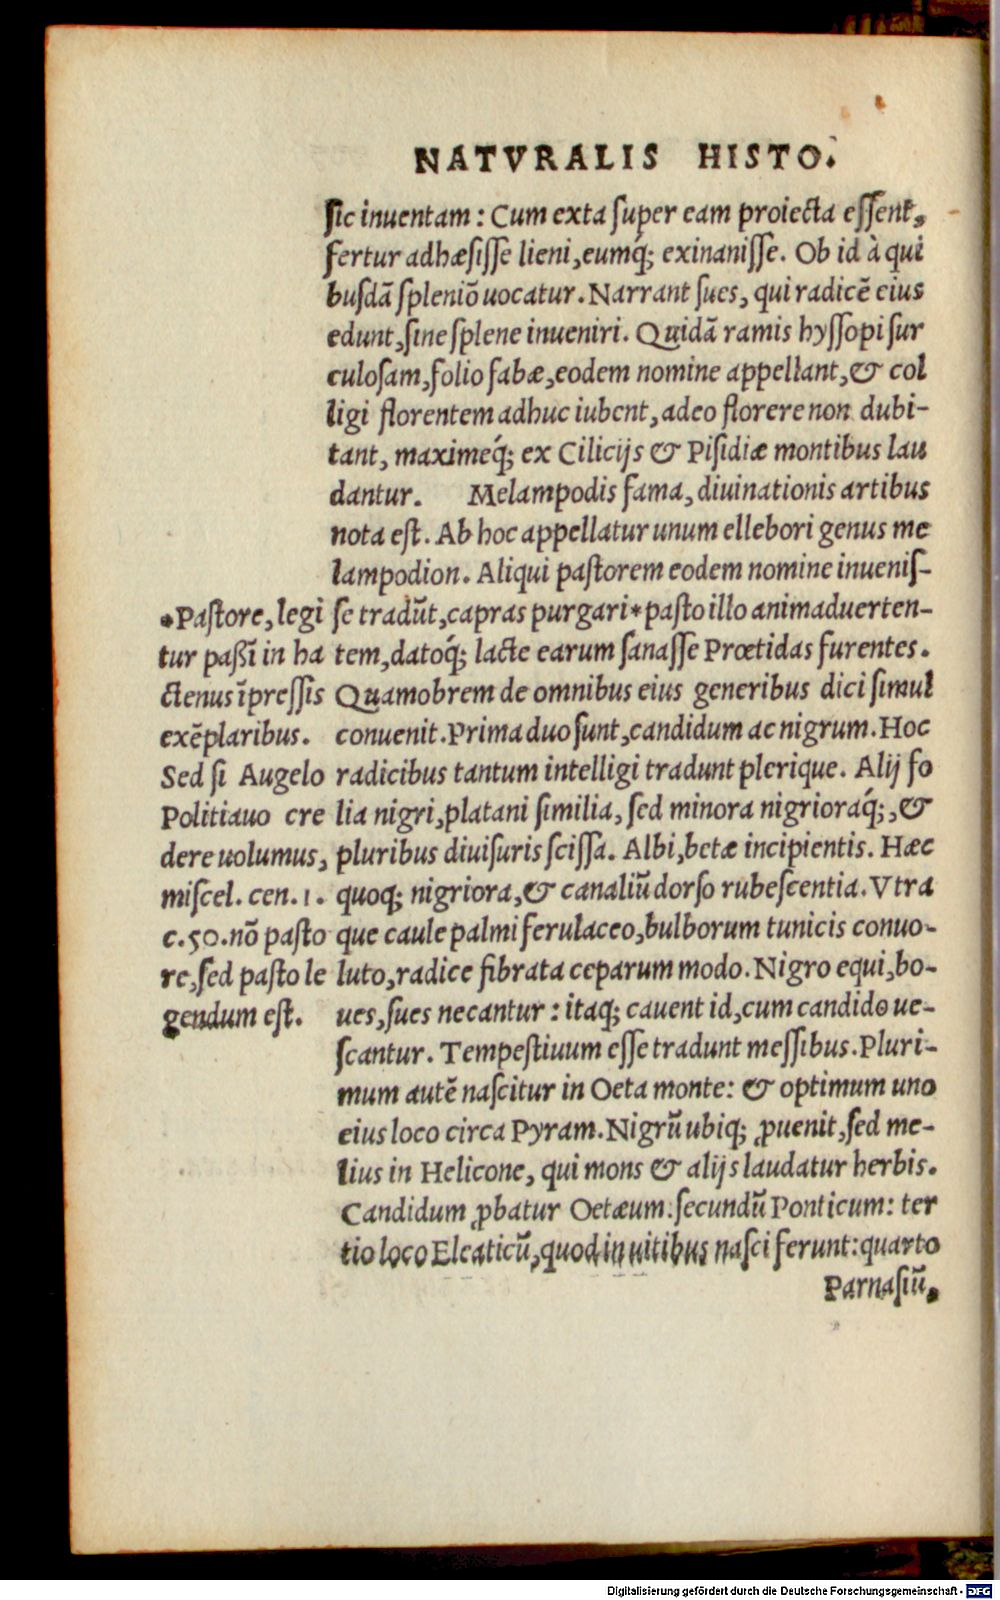 NATVRALIS HISTO.
sic inuentam : Cum exta super eam proiecta essent,
fertur adhæsisse lieni, eumq́; exinanisse. Ob id à qui
busdā spleniō uocatur. Narrant sues, qui radicē eius
edunt, sine splene inueniri. Quidā ramis hyssopi sur
culosam, folio fabæ, eodem nomine appellant, & col
ligi florentem adhuc iubent, adeo florere non dubi-
tant, maximeq́; ex Cilicijs & Pisidiæ montibus lau
dantur. Melampodis fama, diuinationis artibus
nota est. Ab hoc appellatur unum ellebori genus me
lampodion. Aliqui pastorem eodem nomine inuenis-
se tradūt, capras purgari * pasto illo animaduerten-
tem, datoq́; lacte earum sanasse Prœtidas furentes.
Quamobrem de omnibus eius generibus dici simul
conuenit. Prima duo sunt, candidum ac nigrum. Hoc
radicibus tantum intelligi tradunt plerique. Alij fo
lia nigri, platani similia, sed minora nigrioraq́;, &
pluribus diuisuris scissa. Albi, betæ incipientis. Hæc
quoq; nigriora, & canaliū dorso rubescentia. Vtra
que caule palmi ferulaceo, bulborum tunicis conuo-
luto, radice fibrata ceparum modo. Nigro equi, bo-
ues, sues necantur : itaq; cauent id, cum candido ue-
scantur. Tempestiuum esse tradunt messibus. Pluri-
mum autē nascitur in Oeta monte: & optimum uno
eius loco circa Pyram. Nigrū ubiq; ꝓuenit, sed me-
lius in Helicone, qui mons & alijs laudatur herbis.
Candidum ꝓbatur Oetæum. secundū Ponticum: ter
tio loco Eleaticū, quod in uitibus nasci ferunt: quarto
Parnasiū,
*Pastore, legi
tur paßī in ha
ctenus īpressis
exēplaribus.
Sed si Augelo
Politiauo cre
dere uolumus,
miscel. cen. 1.
c. 50. nō pasto
re, sed pasto le
gendum est.
Digitalisierung gefördert durch die Deutsche Forschungsgemeinschaft - DFG